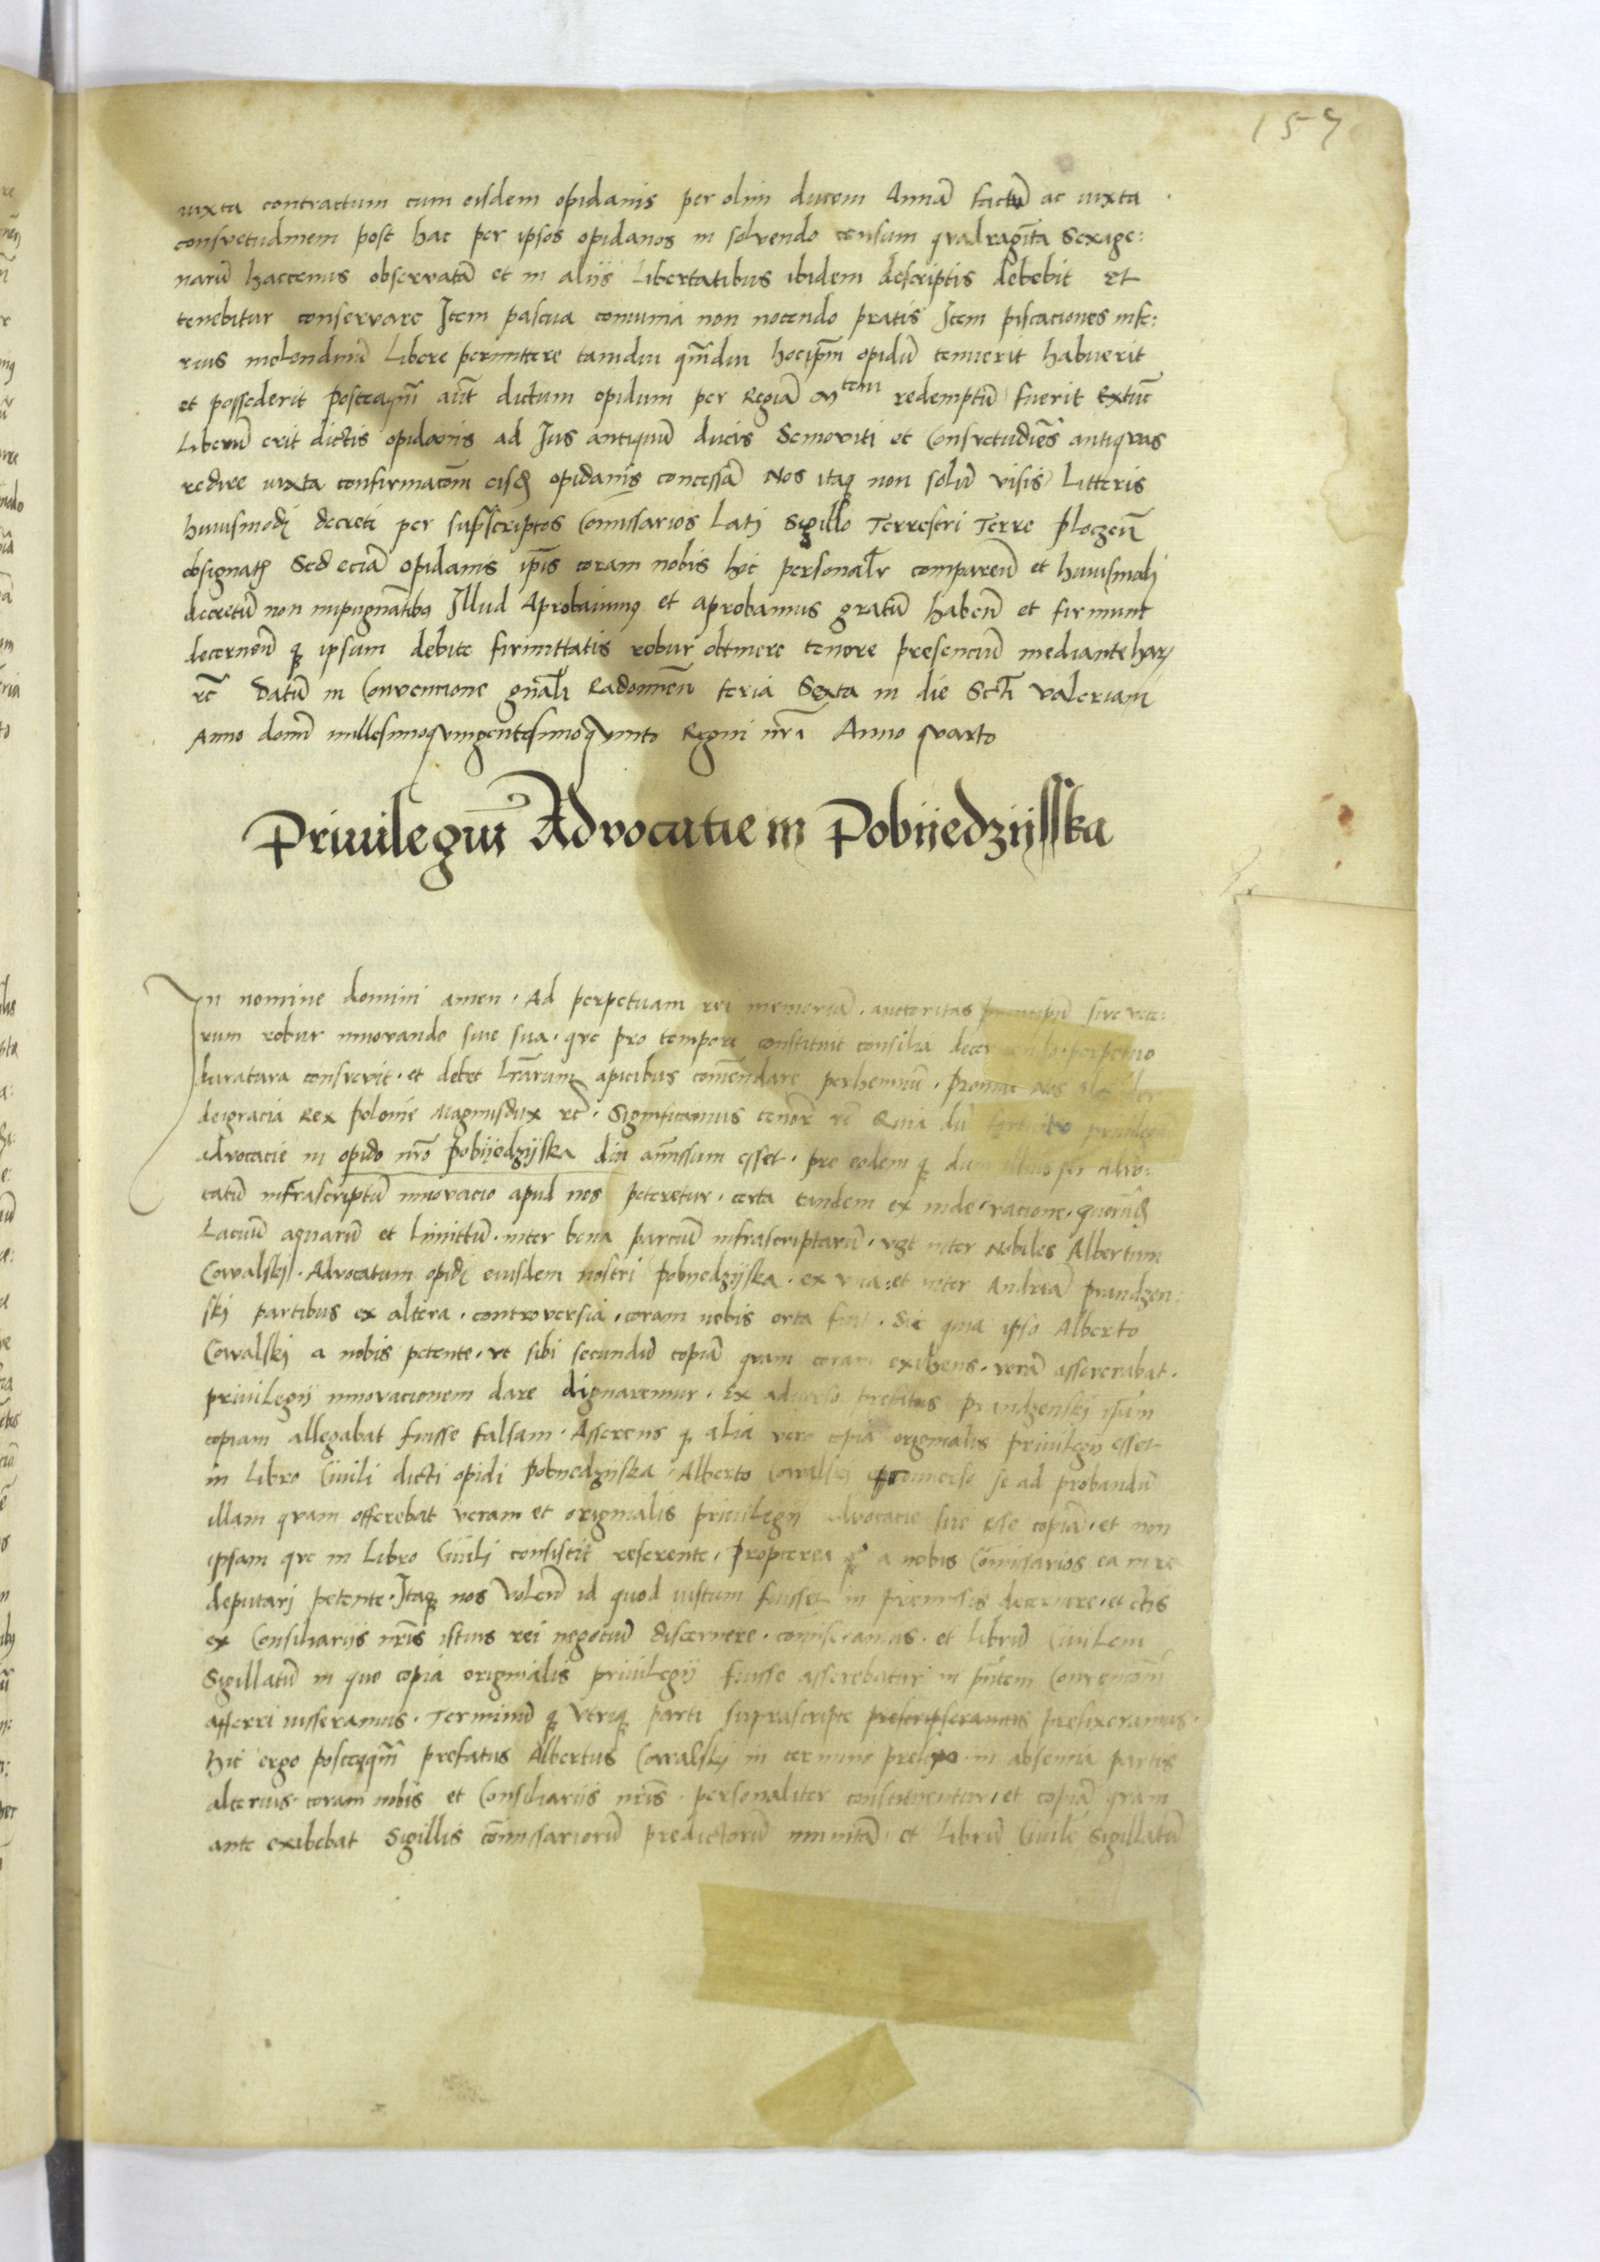 157
iuxta contractum cum eisdem opidanis per olim ducem Annā factū ac iuxta
consuetudinem post hac per ipsos opidanos in solvendo censum qvadragīta Sexage:
narū hactenus observatā et in aliis Libertatibus ibidem descriptis debebit et
tenebitur conservare Item pascua comunia non nocendo pratis Item piscaciones infe:
rius molendinū Libere permittere tamdiu qm̄diu hoc ipm̄ opidū tenuerit habuerit
et possederit postea qm̄ aūt dictum opidum per Regiā Mtem redemptū fuerit Extūc
Liberū erit dictis opidanis ad Ius antiquū ducis Semoviti et Consvetudiēs antiqvas
redire iuxta confirmacōm eisd opidanis concessā Nos itaq non solū visis Litteris
huiusmodi decreti per suprscriptos Comissarios Lati Sigillo Terrestri Terre Ploczeñ
obsignatꝭ Sed eciā opidanis ip̄is coram nobis hic personalr̄ compareñ et huiusmodi
decretū non impugnātibꝯ Illud Aprobavimꝯ et aprobamus gratū habeñ et firmum
decerneñ qꝫ ipsum debite firmittatis robur obtinere tenore presencium mediante harꝫ
rc̄ Datū in Convencione gn̄ali Radomieñ feria Sexta in die Scti Valeriani
Anno domī millesimoqvingentesimoqvinto Regni nr̄i Anno qvarto
Privilegiū Advocatie in Pobijedzijsska
In nomine domini amen. Ad perpetuam rei memoriā. auctoritas principū sive vete:
rum robur innovando sive sua. qve pro tempore constituit consilia decernendo. perpetuo
duratura consvevit. et debet Lr̄arum apicibus comēndare perhennium. Proinde Nos Alexander
deigracia Rex polonie Magnusdux rc̄. Significamus tenorē rc̄ Quia dū
Advocacie in opido nr̄o Pobijedzijska diu amissum esset. pro eodem qꝫ
catum infrascriptum innovacio apud nos peteretur. certa tandem ex inde racione.
Lacuū aquarū et Limitum. inter bona parcium infrascriptarū. vꝫ inter Nobiles Albertum
Cowalskij. Advocatum opidi eiusdem nostri Pobiiedzijska. ex vna. et inter Andreā Prandzen:
ski partibus ex altera. controversia. coram nobis orta fuit. Sic quia ipso Alberto
Cowalskij a nobis petente. vt sibi secundū copiā quam coram exibens. verā assererabat.
privilegij innovacionem dare dignaremur. Ex adverso prefatus Prandzenskij ipsam
copiam allegabat fuisse falsam. Asserens qꝫ alia vero copia originalis privilegij esset
in Libro Civili dicti opidi Pobiiedzijska. Alberto Cowalskij econverso se ad probandū
illam qvam offerebat veram et originalis privilegij Advocacie sue esse copiā. et non
ipsam qve in Libro Civili consistit referente. Propterea a nobis Comissarios ea in re
deputari petente. Itaqꝫ nos volentes id quod iustum fuisset in premissis decernere. et ctis
ex Consiliariis nr̄is istius rei negotium discernere. comiseramus. et librū Civilem
Sigillatū in quo copia originalis privilegij fuisse asserebatur in pn̄tem Convencōm
afferri iusseramus. Terminū qꝫ vtriqꝫ parti suprascripte prescripseramus prefixeramus.
Hic ergo posteaqm̄ prefatus Albertus Cowalskij in termino prefixo. in absencia partis
alterius coram nobis et Consiliariis nr̄is. personaliter constitueretur. et copiā qvam
ante exibebat Sigillis cōmissariorū predictorū munitā. et Librū Civilē Sigillatū